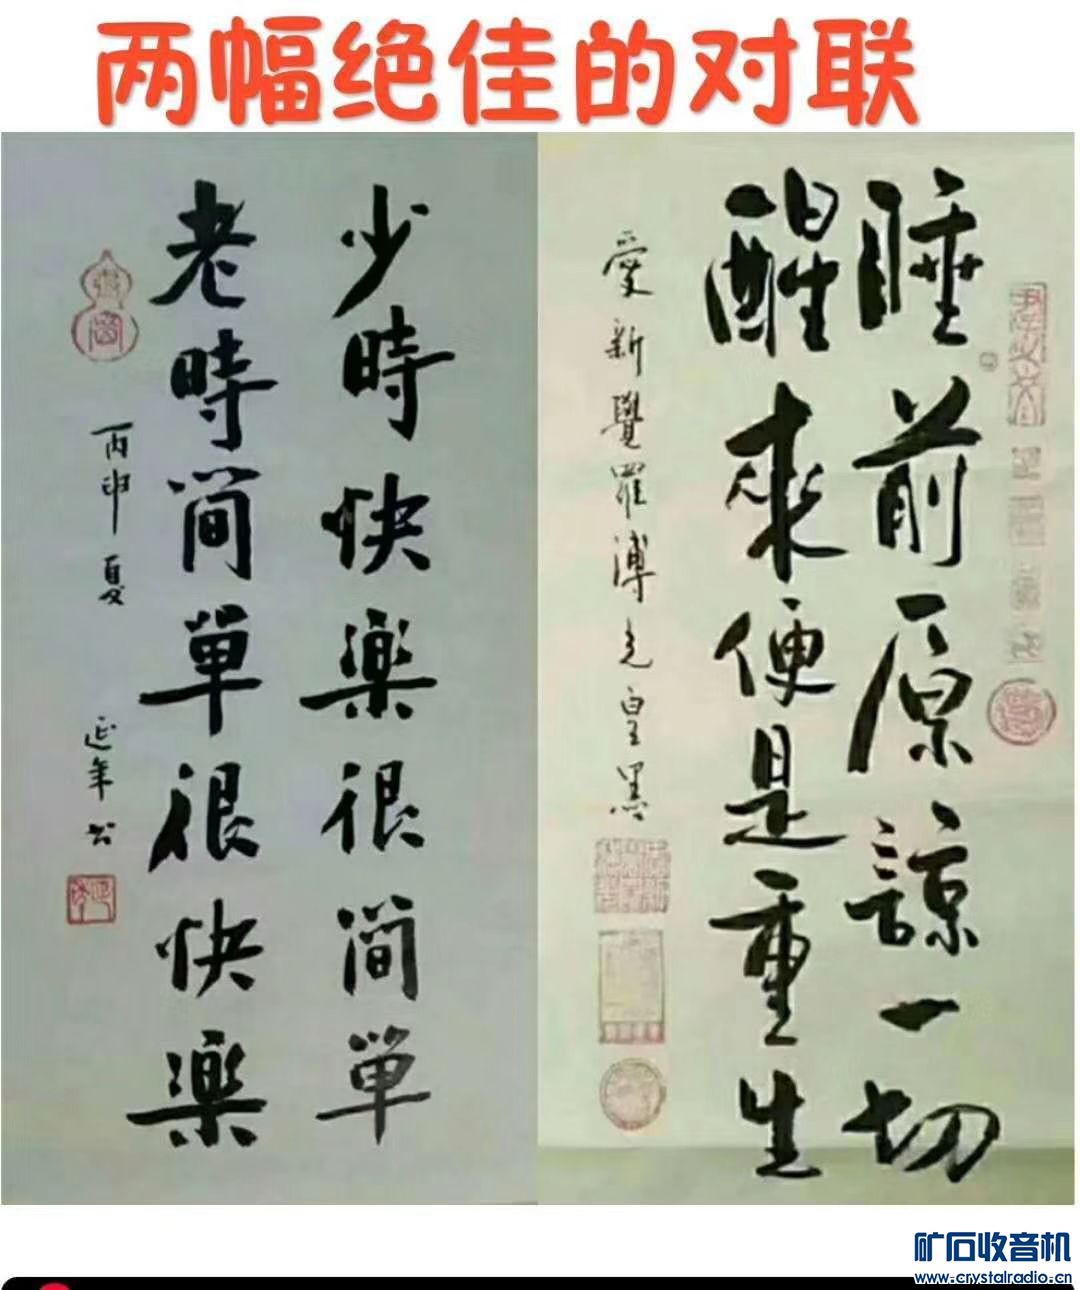 两幅绝佳的对联
睡前原諒一切
醒来便是重生
愛新覺羅溥
少時快樂很简單
老時简單很快樂
丙申夏
延年
矿石收音机
www.crystalradio.cn